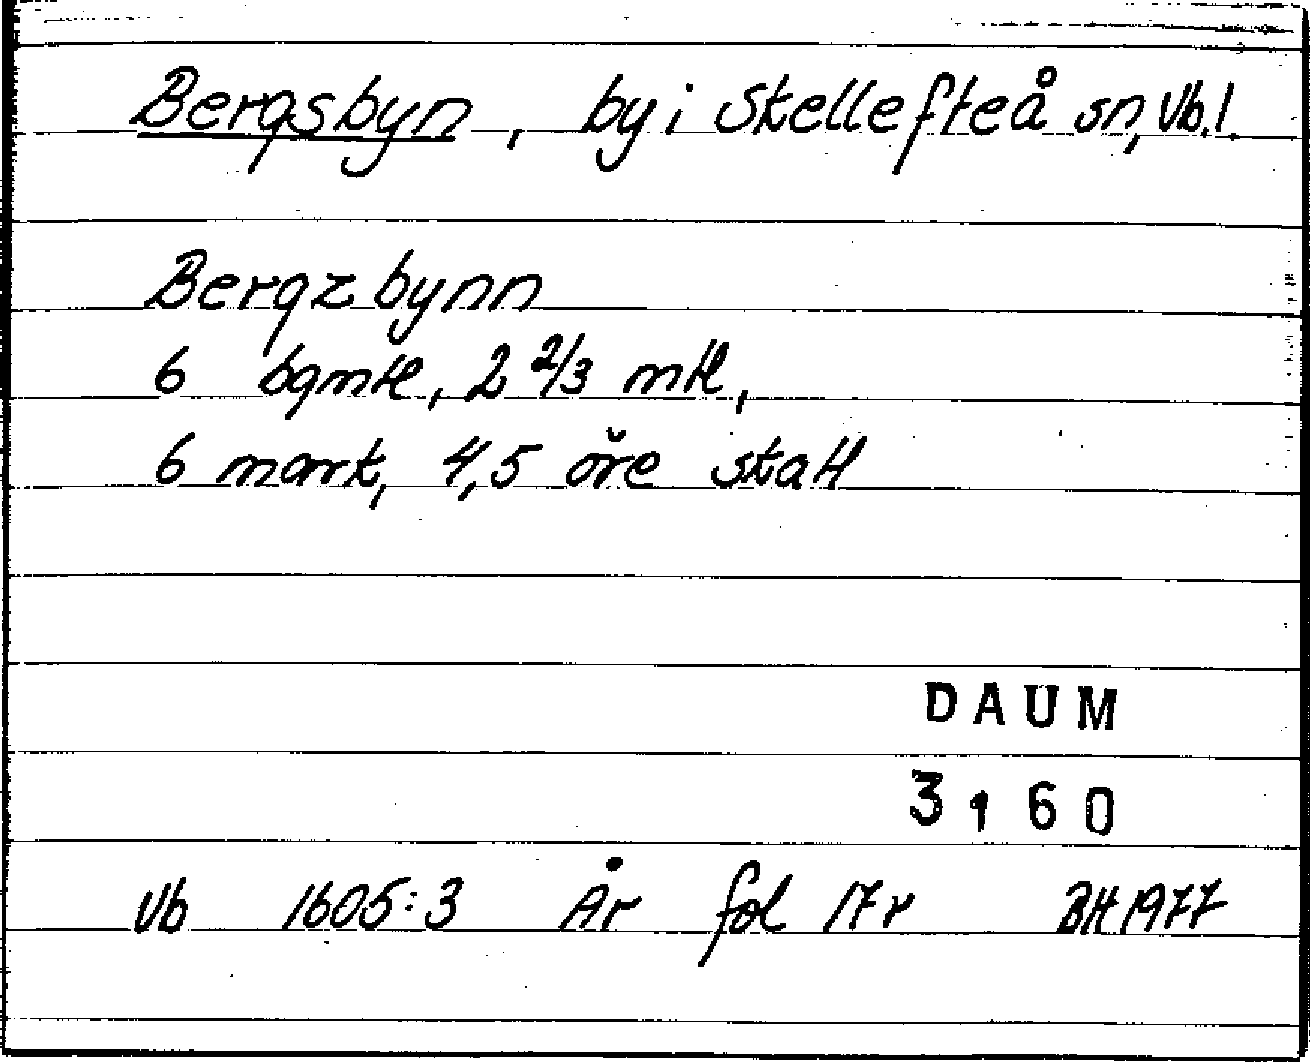 Bergsbyn, by i Skellefteå sn, Vb. l.
Bergzbynn
6 bgmtl, 2 2/3 mtl,
6 mark, 4,5 öre skatt
DAUM
3160
Vb 1605:3 År fol 17r BH 1977